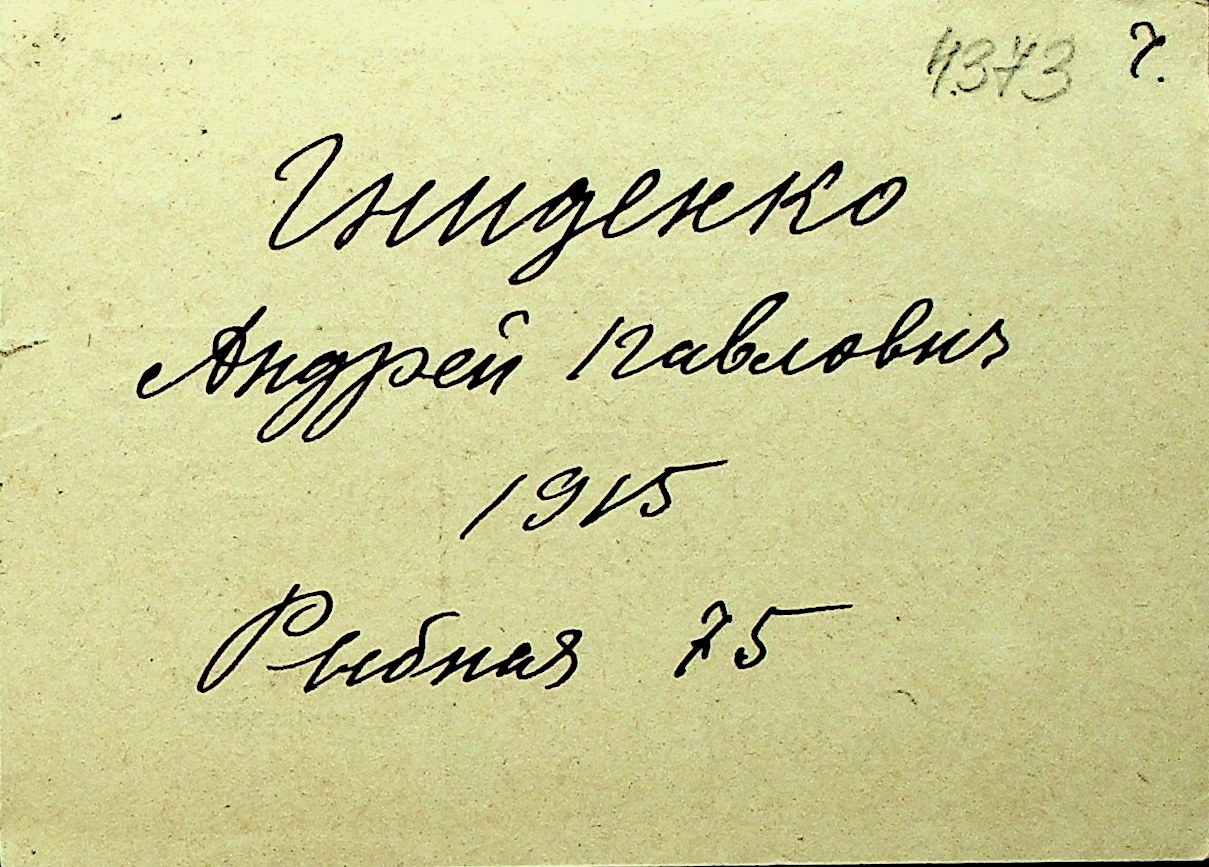 4373 7.
Гниденко
Андрей Павлович
1915
Рыбная 75